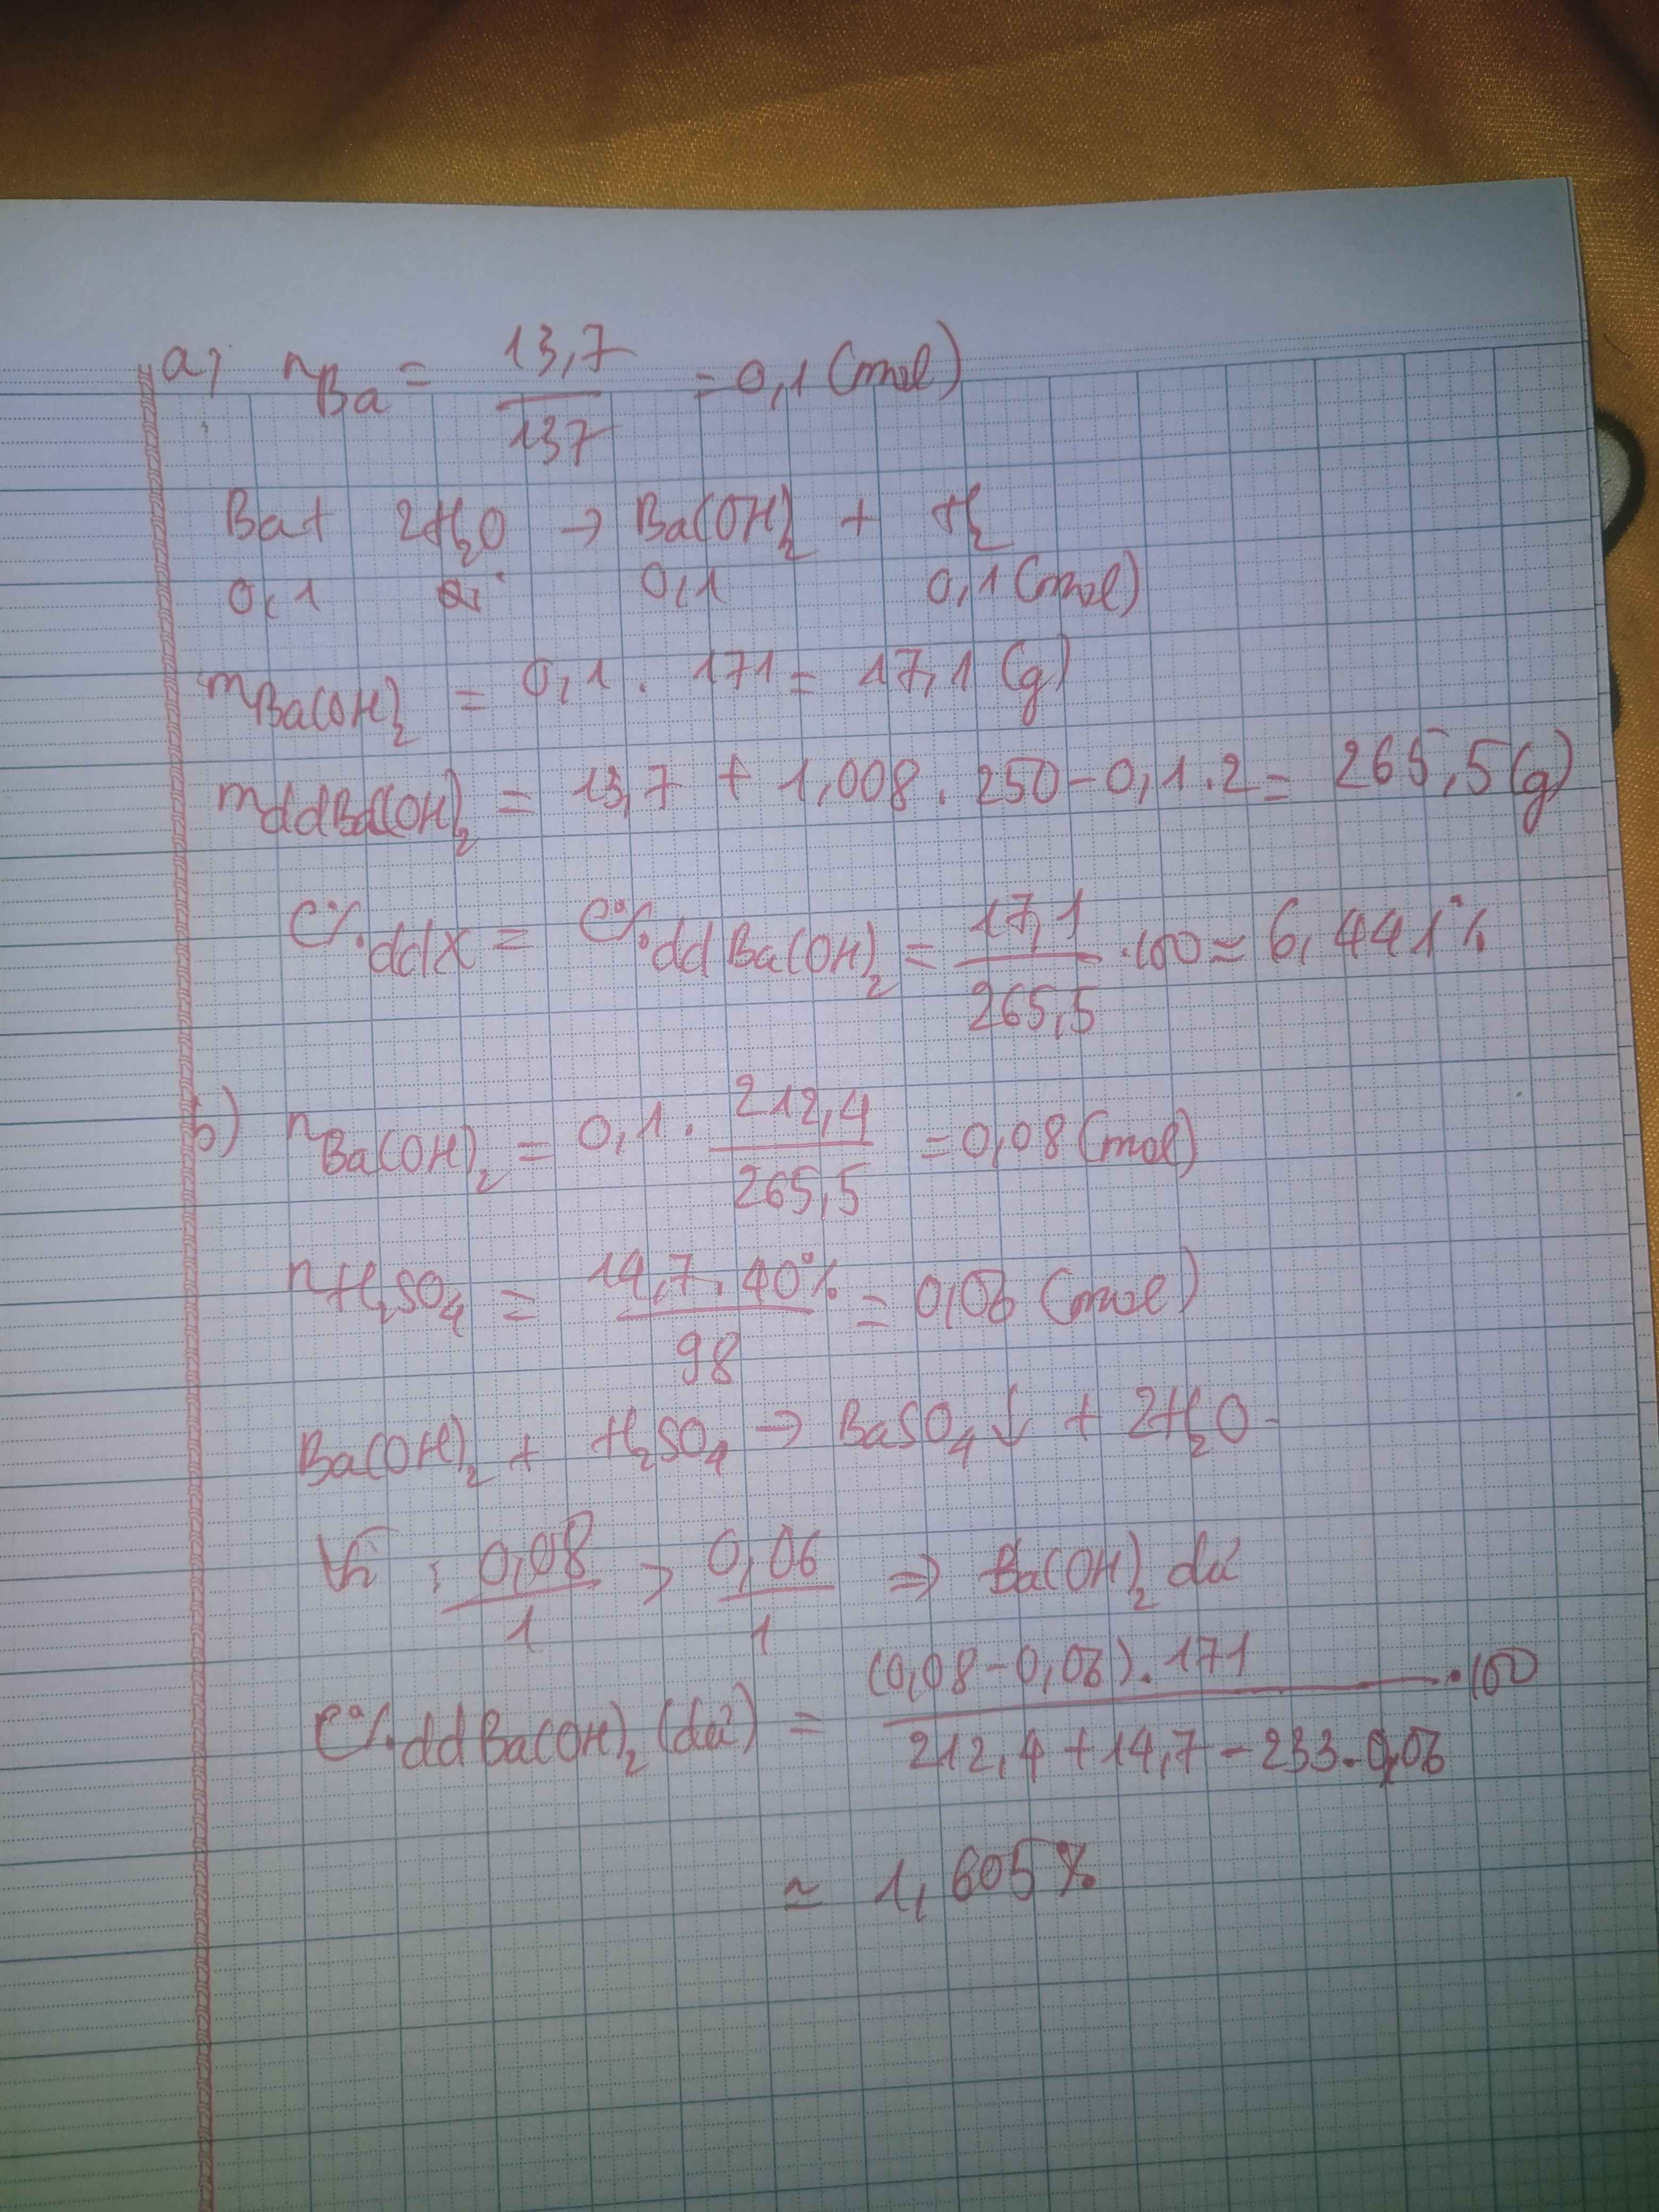 a, n_Ba = 13,7/137 = 0,1 (mol)
Ba + 2H₂O → Ba(OH)₂ + H₂
0,1 0,1 0,1 (mol)
m_Ba(OH)₂ = 0,1 . 171 = 17,1 (g)
m_ddBa(OH)₂ = 13,7 + 1,008 . 250 - 0,1 . 2 = 265,5 (g)
C%ddX = C%ddBa(OH)₂ = 17,1/265,5 .100 ≈ 6,441%
b) n_Ba(OH)₂ = 0,1 . 212,4/265,5 = 0,08 (mol)
n_H₂SO₄ = 14,7 . 40%/98 = 0,06 (mol)
Ba(OH)₂ + H₂SO₄ → BaSO₄↓ + 2H₂O
Vì : 0,08/1 > 0,06/1 ⇒ Ba(OH)₂ dư
C%ddBa(OH)₂ (dư) = (0,08 - 0,06) . 171/212,4 + 14,7 - 233 . 0,06 .100
≈ 1,605%